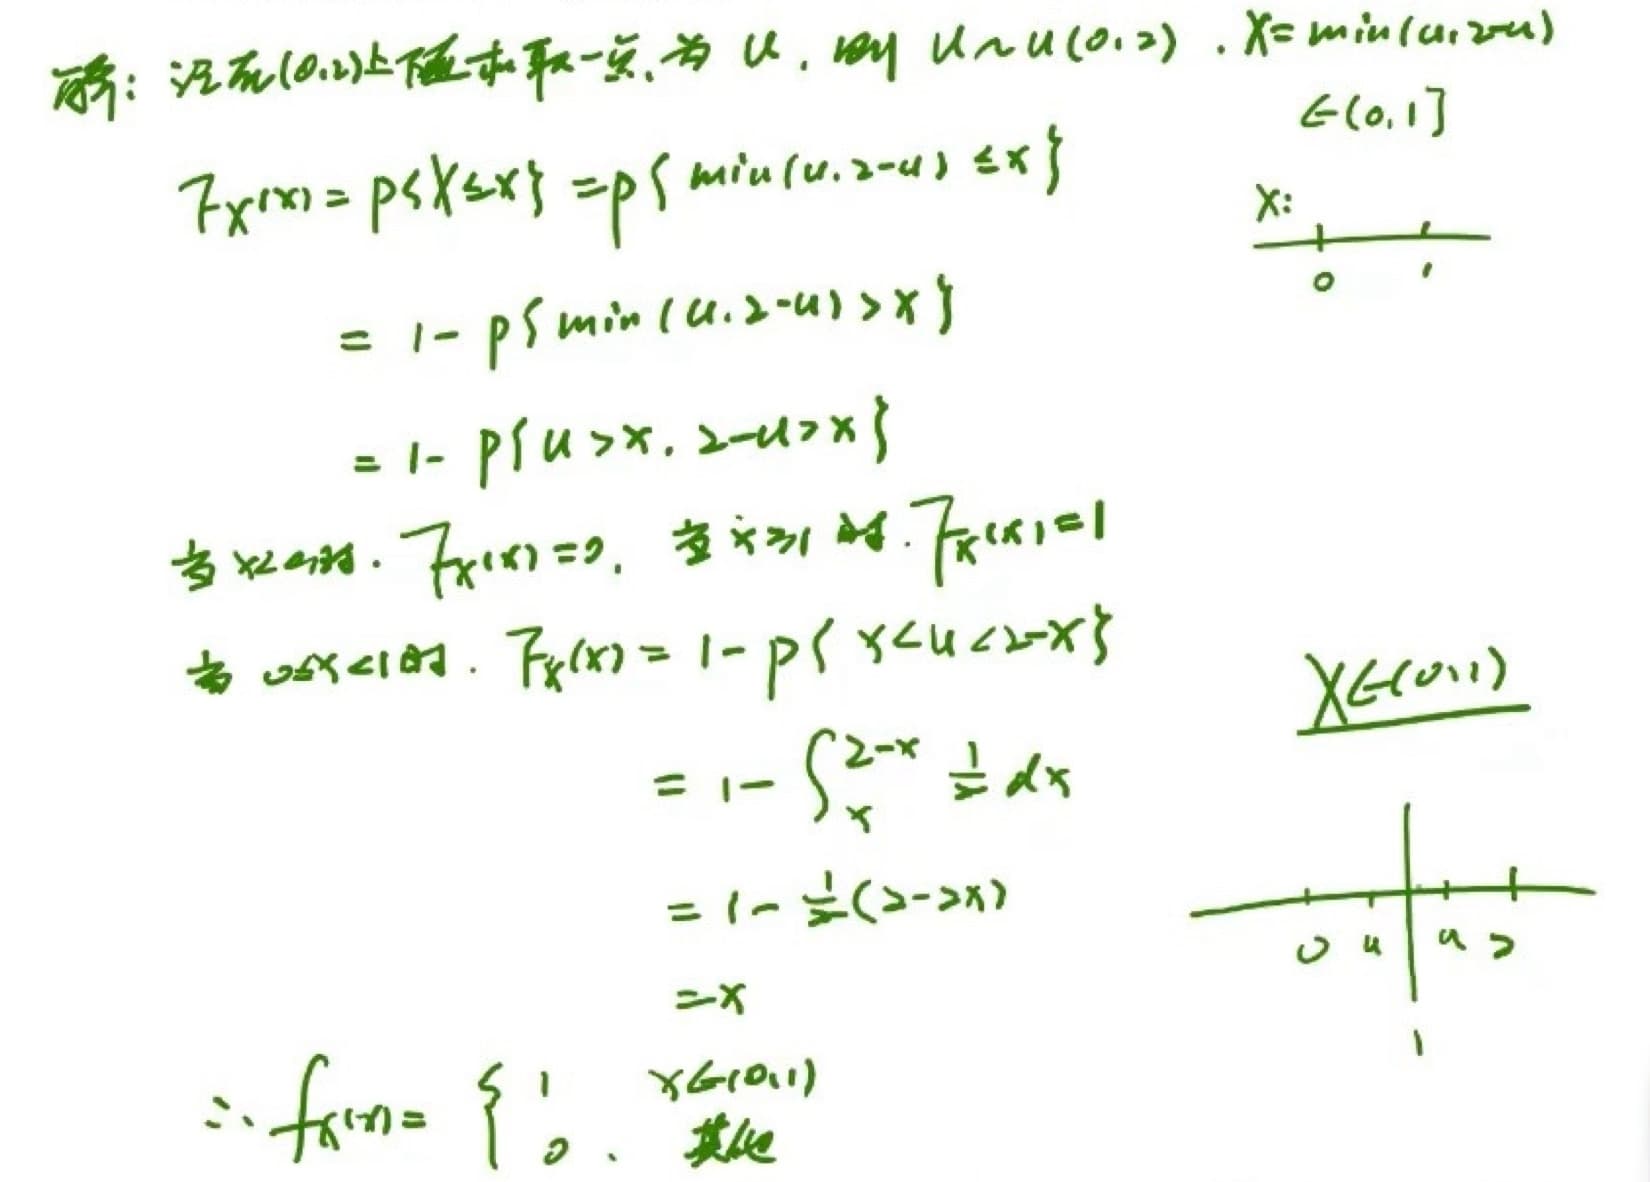 解：设在(0,2)上随机取一点为 U, 则 U~U(0,2). X=min(U,2-U)
∈(0,1]
F_X(x)=P{X≤x}=P{min(U,2-U)≤x}
X:
0 1
=1-P{min(U,2-U)>x}
=1-P{U>x, 2-U>x}
当x<0时. F_X(x)=0, 当x≥1时. F_X(x)=1
当0≤x<1时. F_X(x)=1-P{x<U<2-x}
X∈(0,1)
=1-∫_x^{2-x} 1/2 dx
=1-1/2(2-2x)
0 u u 2
=x
1
∴ f_X(x)={1, x∈(0,1)
0, 其他